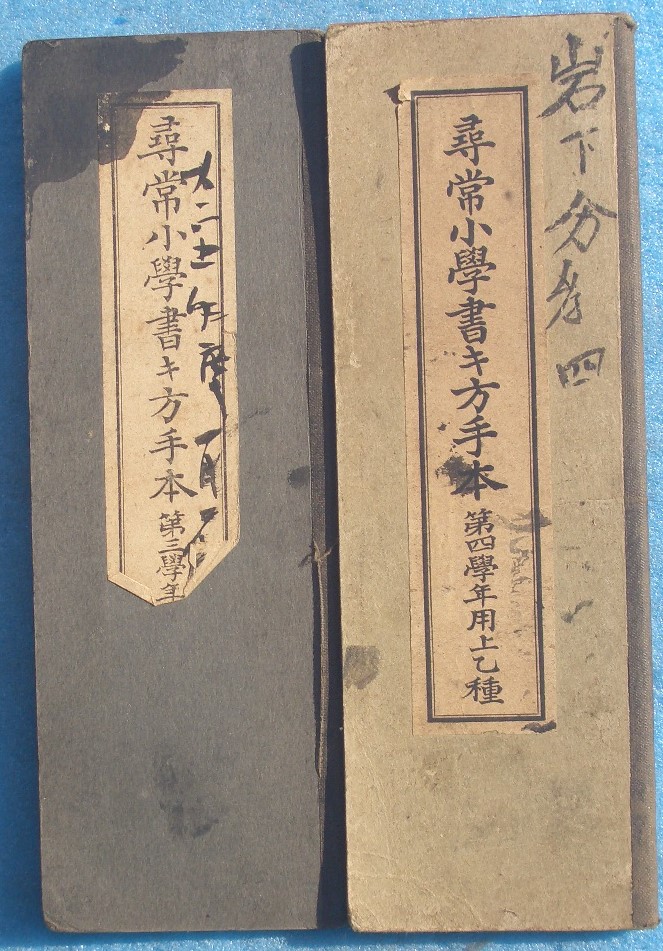 岩下分孝四
尋常小學書キ方手本 第四學年用上乙種
尋常小學書キ方手本 第三學年